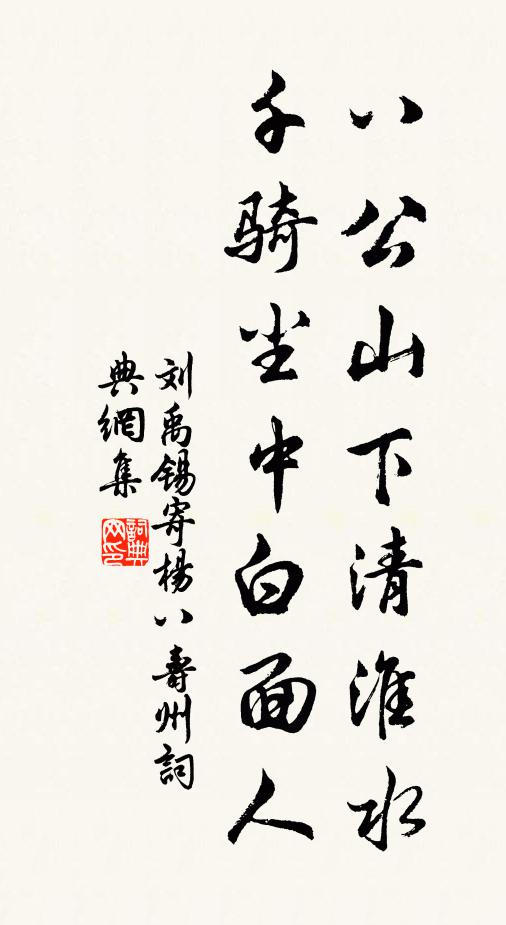 八公山下清淮水
千骑尘中白面人
刘禹锡寄楊八壽州詞
典網集
詞典
网印